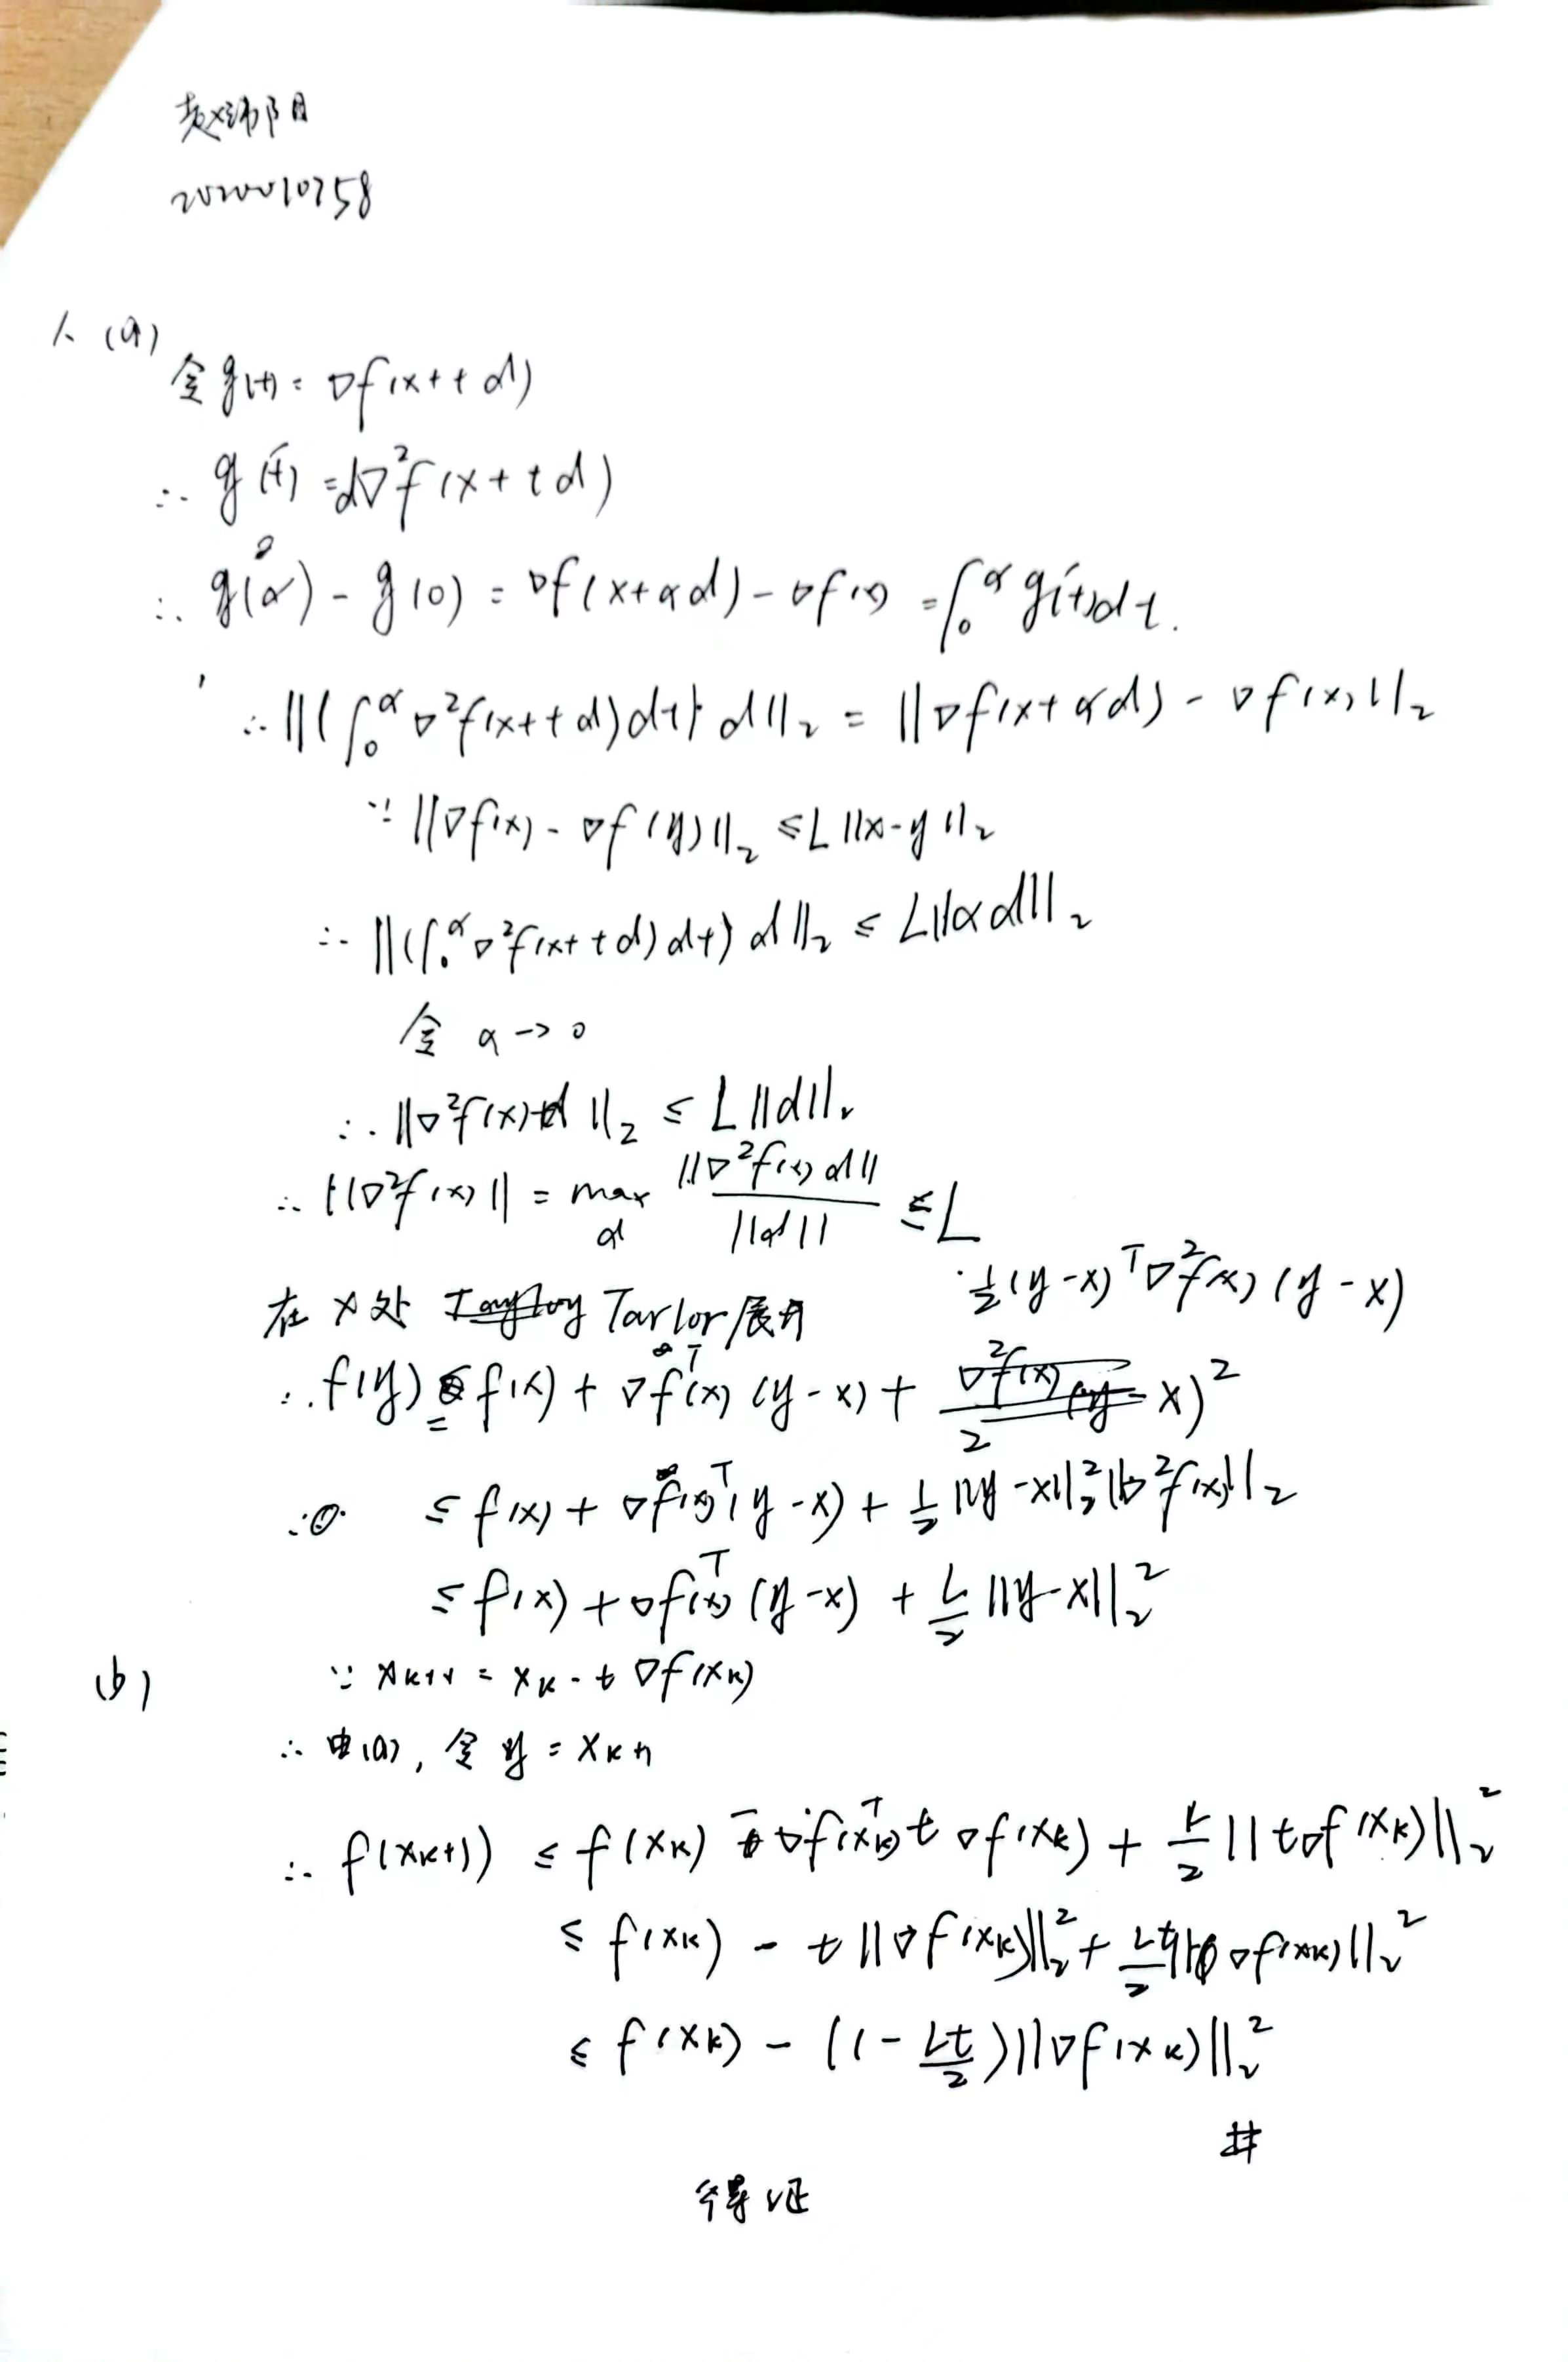 赵祎阳
2020010258
1. (a)
令 g(t) = ∇f(x+td)
∴ g'(t) = d∇²f(x+td)
∴ g(α) - g(0) = ∇f(x+αd) - ∇f(x) = ∫₀^α g'(t)dt.
∴ ||(∫₀^α ∇²f(x+td)dt) d||₂ = ||∇f(x+αd) - ∇f(x)||₂
∵ ||∇f(x) - ∇f(y)||₂ ≤ L||x-y||₂
∴ ||(∫₀^α ∇²f(x+td)dt) d||₂ ≤ L||αd||₂
令 α → 0
∴ ||∇²f(x)d||₂ ≤ L||d||₂
∴ ||∇²f(x)|| = max_d ||∇²f(x)d|| / ||d|| ≤ L
在 x 处 Tarlor 展开
½(y-x)ᵀ∇²f(x)(y-x)
∴ f(y) = f(x) + ∇f(x)ᵀ(y-x) +
≤ f(x) + ∇f(x)ᵀ(y-x) + ½||y-x||₂²||∇²f(x)||₂
≤ f(x) + ∇f(x)ᵀ(y-x) + L/2 ||y-x||₂²
(b) ∵ x_{k+1} = x_k - t∇f(x_k)
∴ 由(a), 令 y = x_{k+1}
∴ f(x_{k+1}) ≤ f(x_k) - ∇f(x_k)ᵀ t∇f(x_k) + L/2 ||t∇f(x_k)||₂²
≤ f(x_k) - t||∇f(x_k)||₂² + Lt²/2 ||∇f(x_k)||₂²
≤ f(x_k) - (1 - Lt/2)||∇f(x_k)||₂²
#
得证